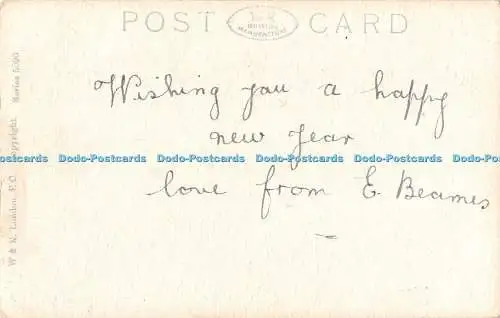 POST CARD
BRITISH
MANUFACTURE
Wishing you a happy
new year
love from E Beames
Dodo-Postcards Dodo-Postcards Dodo-Postcards Dodo-Postcards Dodo-Postcards
W & K. London, E.C. Copyright. Series